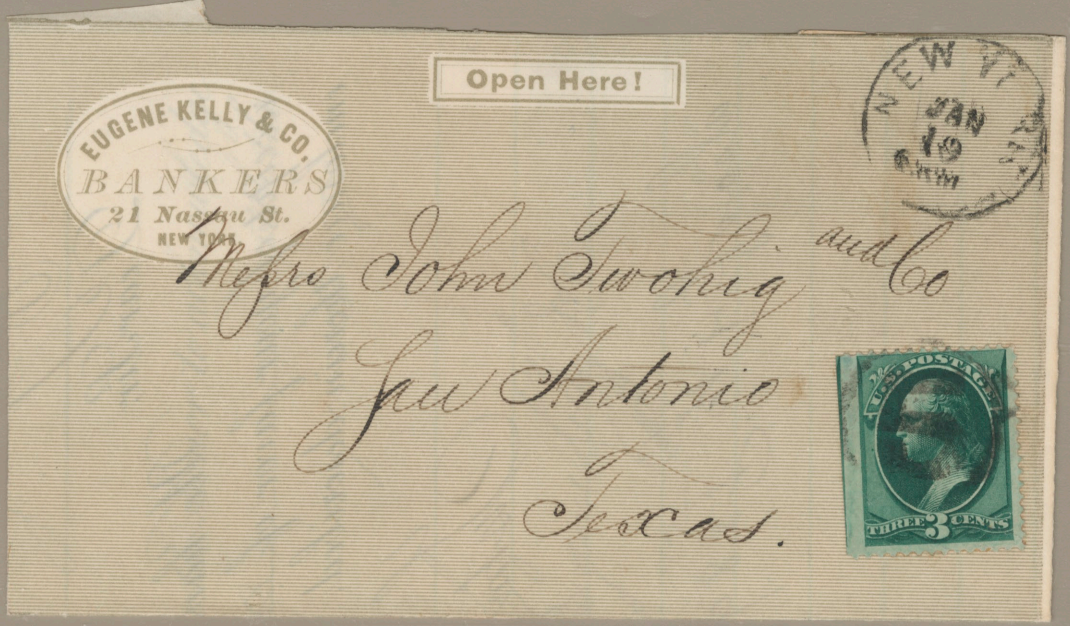 EUGENE KELLY & CO.
BANKERS
21 Nassau St.
NEW YORK
Open Here!
NEW
JAN
19
Messrs John Twohig and Co
San Antonio
Texas.
U.S. POSTAGE
THREE 3 CENTS